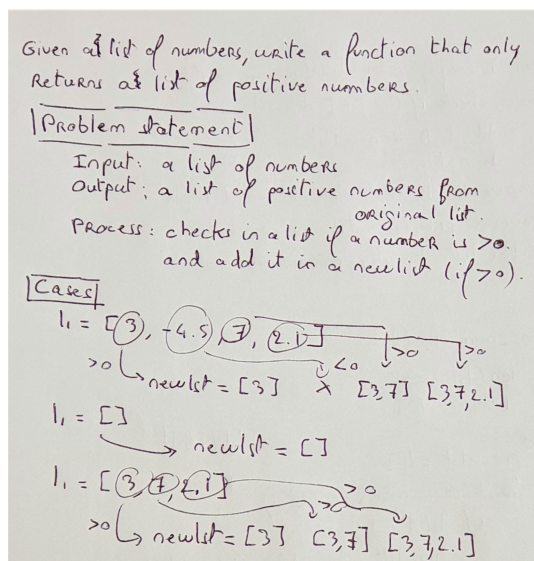 Given a list of numbers, write a function that only
Returns a list of positive numbers.
Problem statement
Input: a list of numbers
Output: a list of positive numbers from
original list.
Process: checks in a list if a number is >0.
and add it in a newlist (if >0).
Cases
l₁ = [3, -4.5, 7, 2.1]
>0 newlst = [3] <0 X >0 [3,7] >0 [3,7,2.1]
l₁ = []
newlst = []
l₁ = [3, 7, 2.1]
>0 newlst = [3] >0 [3,7] >0 [3,7,2.1]